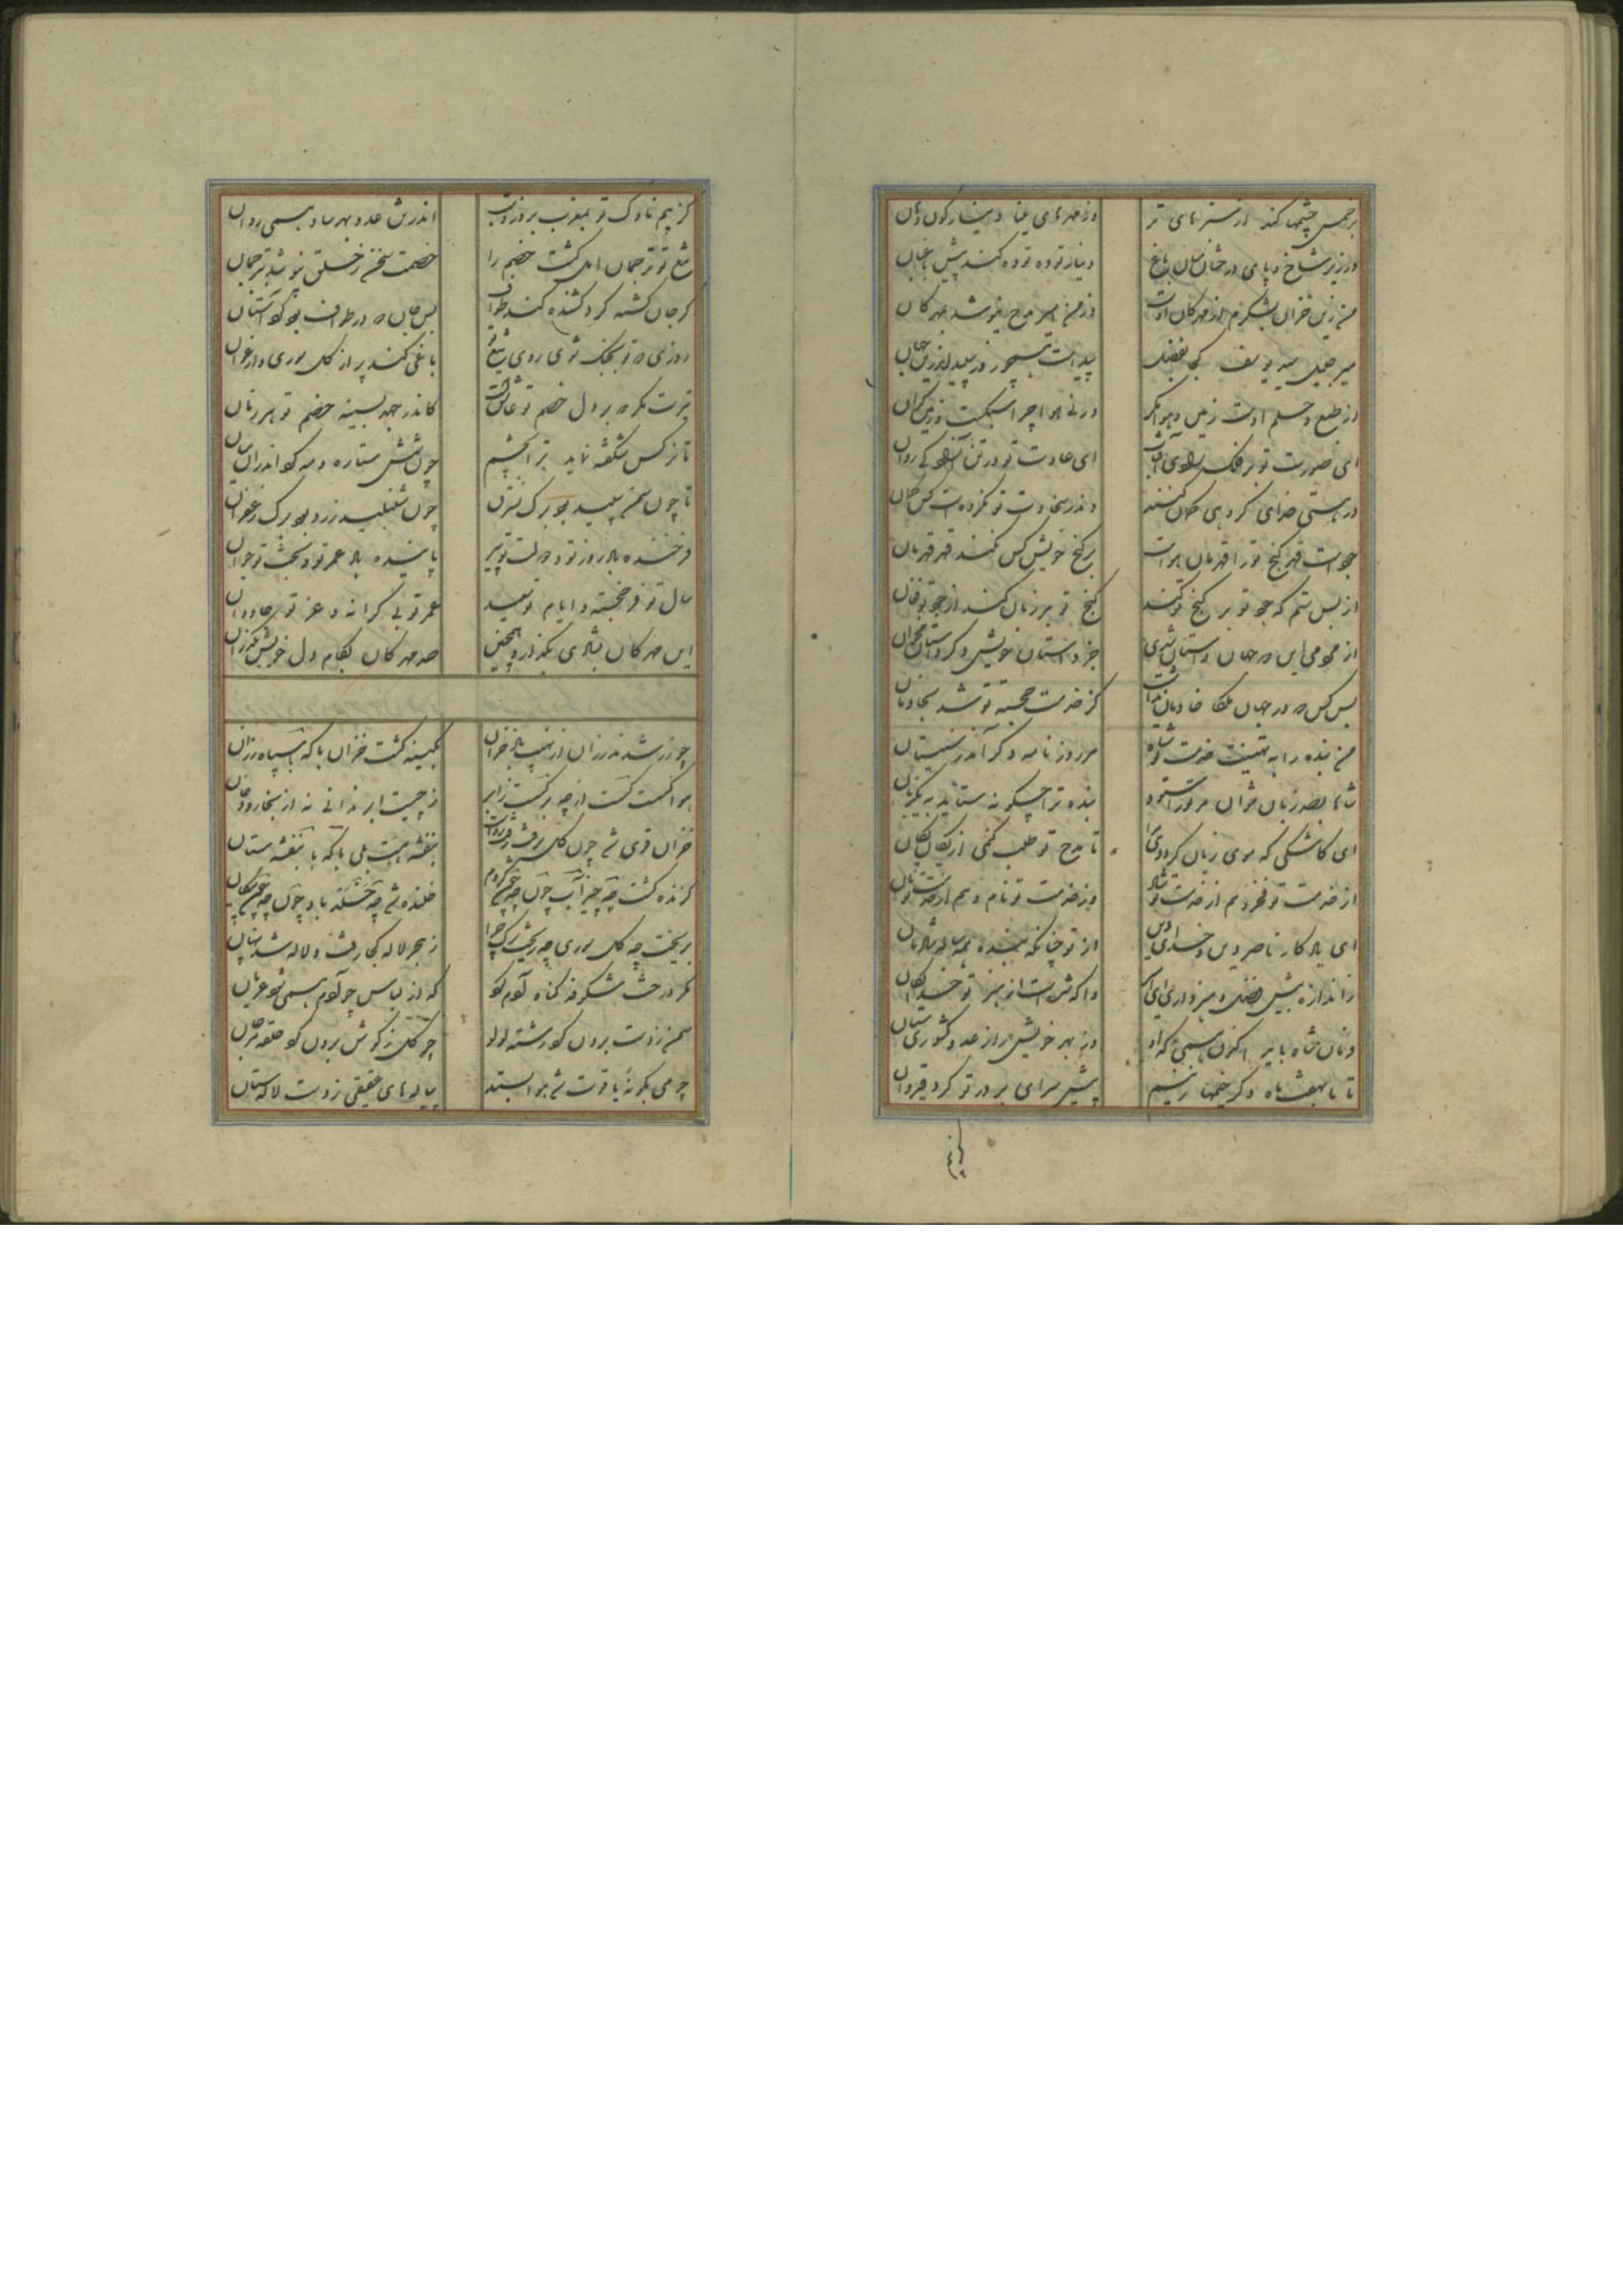 بر جس چشمها کند از سبزهای تر وز مهرهای مینا دینارگون دهان
وز زیر شاخ و پای درختان میان باغ دینار توده توده کند پیش باغبان
من زین خزان بشکرم از مهرگان اوست وز من امیر مدح نیوشد بمهرگان
میر جلیل سید یوسف کجا بفضل پیداست همچو روز سپید اندرین جهان
از طبع و حلم اوست زمین و هوا مگر ورنی هوا چرا سبکست و زمین گران
ای صورت تو بر فلک رادی آفتاب ای عادت تو در تن آزادگی روان
در هستی خدای گروهی گمان کنند واندر سخاوت تو نکردست کس گمان
جود است قهر گنج تو را قهرمان براست بر گنج خویش کس نکند قهر قهرمان
از بس ستم که جود تو بر گنج تو کند گنج تو هر زمان کند از جود تو فغان
از مردمی این در جهان داستان شدی جز داستان خویش دگر داستان مخوان
بس کس در جهان ملکا خادمان نداشت کز خدمت خجسته تو شد بخادمان
من بنده را به تهنیت خدمت تو شاه هر روز نامه دگر آید ز سیستان
شاها بصد زبان نتوان مر ترا ستود بنده ترا چگونه ستاید به یک زبان
ای کاشکی که موی زبان کرددی مرا تا مدح تو طلب کنمی از یکان یکان
از خدمت تو فخر و هم از خدمت تو جاه وز خدمت تو نام و هم از خدمت تو نان
ای یادگار ناصر دین و خدای دین از تو چنانکه بنده همه ساله شادمان
زاندازه بیش فضل و هنر داری ای امیر
وان شاه با پر اکنون همی که او وز بهر خویش راز عدو کشوری ستان
تا تا بهفت ماه دگر خیمها زنیم پیش سرای پرده تو گرد قیروان
کز بیم
کز بیم ناوک تو بمغرب بروز و شب اندر تن عدو بهر ساو همی روان
تیغ تو ترجمان اجل گشت خصم را خصمت سخن ز خلق نیوشد بترجمان
گر جان کشته گرد کشنده کند طواف بس جان در طواف بود گرد آستان
روزی تو بجنگ شوی روی تیغ تو باغی کند پر از گل سوری و ارغوان
تیرت مگر بر دل خصم تو عاشقست کاندر جهد بسینه خصم تو هر زمان
تا نرگس شگفته نماید ترا بچشم چون شش ستاره و مه گرد اندران میان
تا چون سمن سپید بود برگ نسترن چون شنبلید زرد بود برگ زعفران
فرخنده باد روز تو و دولت تو پیر پاینده باد عمر تو و بخت تو جوان
سال تو فر خجسته و ایام تو سعید عمر تو بی کرانه و عز تو جاودان
این مهرگان بشادی بگذار و همچنین صد مهرگان بکام دل خویش بگذران
چو زر شدند رزان از نهیب باد خزان بکینه گشت خزان با که با سپاه رزان
هوا گسست گسست از چه برگسست ز ابر ز چیست ابر ندانی تو از بخار و دخان
خزان قوی شد چون گل برفت رفت رواست بنفشه هست بلی با که با بنفشه ستان
گزنده گشت چه چیز آب چون چه چون کژدم خلنده شد چه چیز باد چون چه چون پیکان
بریخت چه گل سوری چه ریخت برگ چرا ز هجر لاله کجا رفت لاله شد پنهان
مگر درخت شکوفه گناه آدم کرد که از لباس چو آدم همی شود عریان
سمن ز دست برون کرد رشته لؤلؤ چو گل ز گوش برون کرد حلقه مرجان
چو می بگونه یاقوت شد هوا بستد پیاله‌های عقیقی ز دست لاله‌ستان